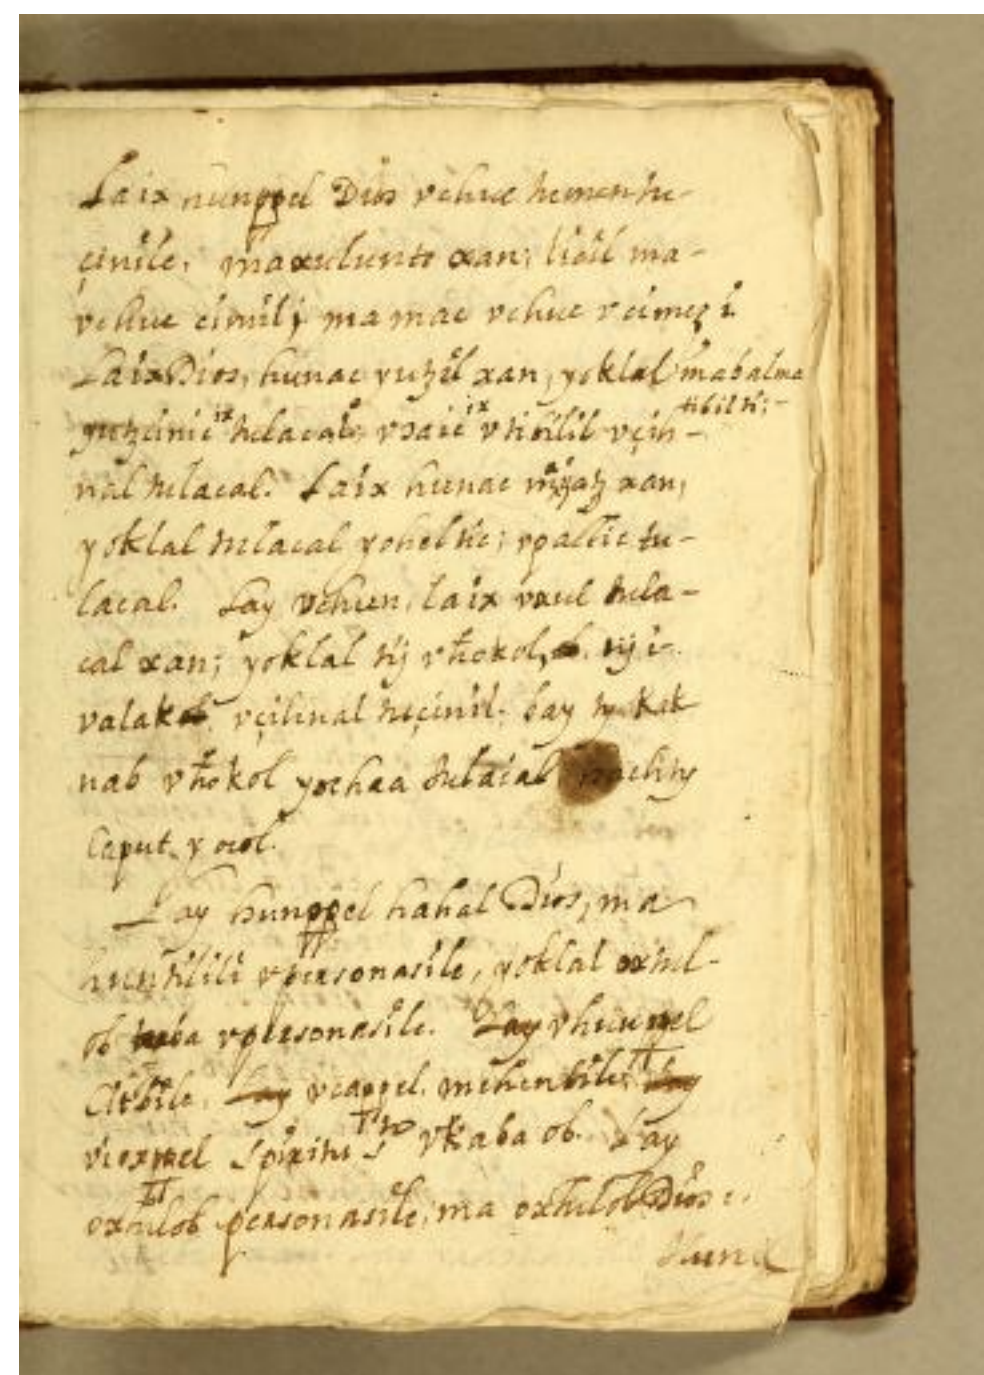 Laix hunppel Dios vchuc tumen tu-
çinile, maxulunte xan; liöil ma-
vchuc cimil; ma mac vchuc vcimez i
Laix Dios, hunac vutzil xan, yoklal mabalma
tibilti;-
yutzcinic ix tulacal; vɔaic ix vtibilil vçih-
nal tulacal. Laix hunac miyatz xan,
yoklal tulacal yohelte; vpaltic tu-
lacal. Lay vchun, laix vxul tula-
cal xan; yoklal tij vhokol, tij i.
valak vçihnal tuçinil. bay ty kak
nab vhokol yochaa tulacal machity
Caput y ocol.
Lay hunppel hahal Dios, ma
huntulili vpersonasile, yoklal oxtul-
ob vpersonasile. Lay vhunppel
Citbile, Lay vcappel mehenbile, Lay
vioxppel Spiritu Sto vkaba ob. Lay
oxtulob personasile, ma oxtulob Dios:.
Hunx